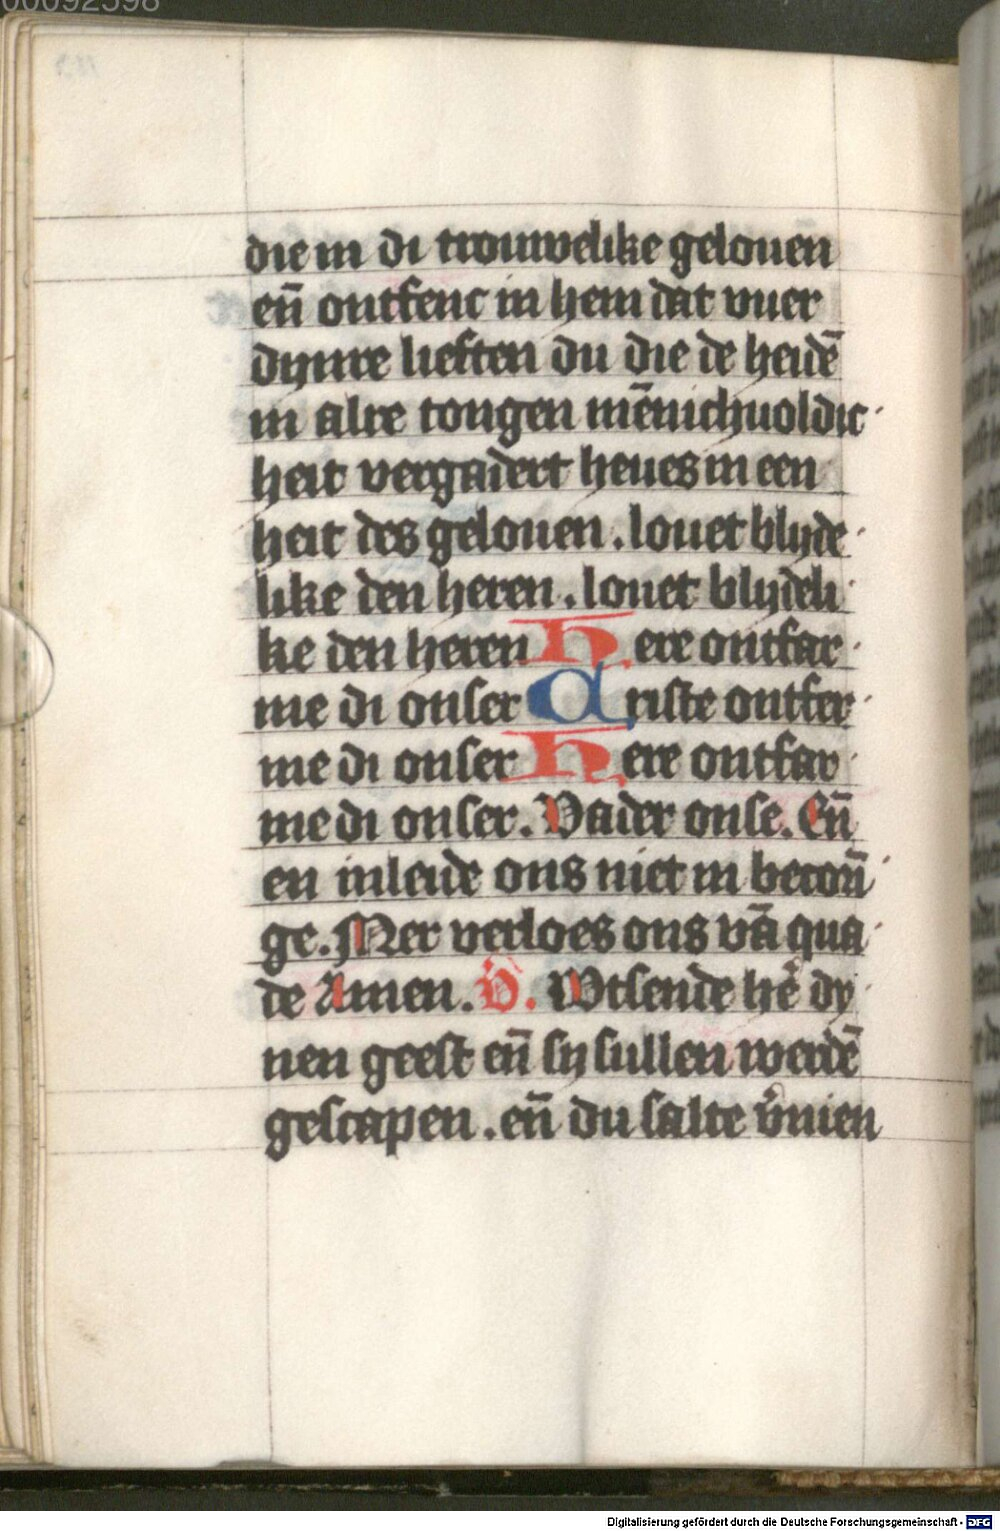 00092598
die in di trouwelike gelouen̄
en̄ ontfenc in hem dat vuer
dynre lieften du die de heidē
in alre tongen mēnichuoldic
heit vergadert heues in een
heit des gelouen . louet blyde
like den heren . louet blydeli
ke den heren Here ontfar
me di onser Criste ontfer
me di onser Here ontfar
me di onser . Vader onse . En̄
en inleide ons niet in becorī
ge . Mer verloes ons vā qua
de Amen . V . Wtsende hē dy
nen geest en̄ sy sullen werdē
gescapen . en̄ du salte v̄nien
Digitalisierung gefördert durch die Deutsche Forschungsgemeinschaft - DFG